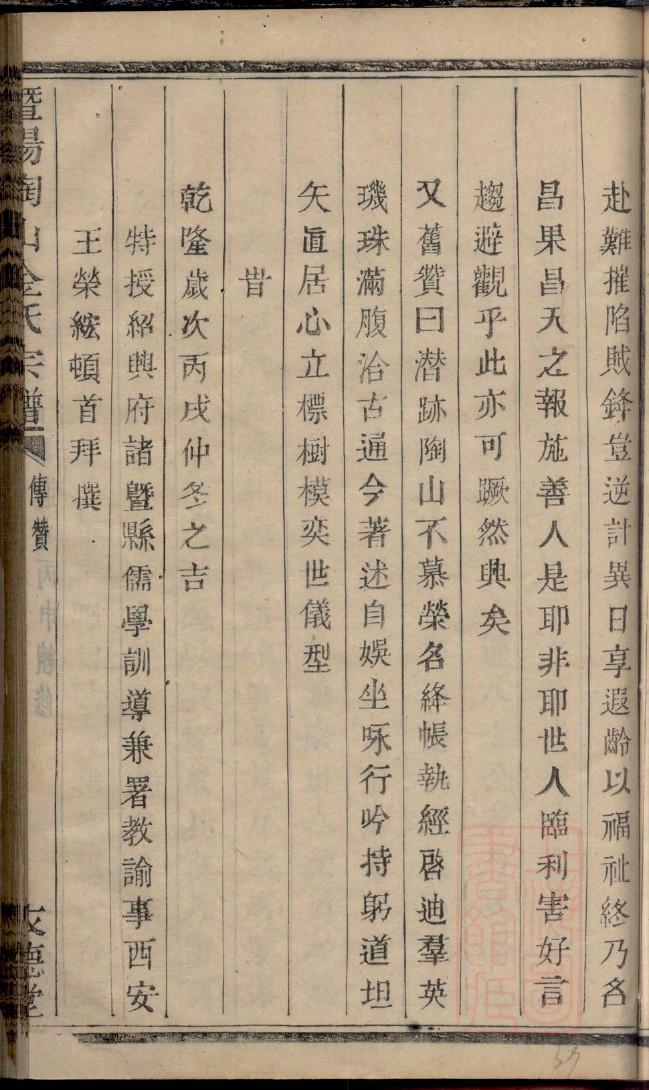 赴難摧陷賊鋒豈逆計異日享遐齡以福祉終乃名
昌果昌天之報施善人是耶非耶世人臨利害好言
趨避觀乎此亦可蹶然興矣
又舊贊曰潜跡陶山不慕榮名絳帳執經啓迪羣英
璣珠滿腹洽古通今著述自娛坐咏行吟持躬道坦
矢直居心立標樹模奕世儀型
旹
乾隆歲次丙戌仲冬之吉
特授紹興府諸曁縣儒學訓導兼署教諭事西安
王榮綋頓首拜撰
暨陽陶山金氏宗譜 傳贊 文德堂